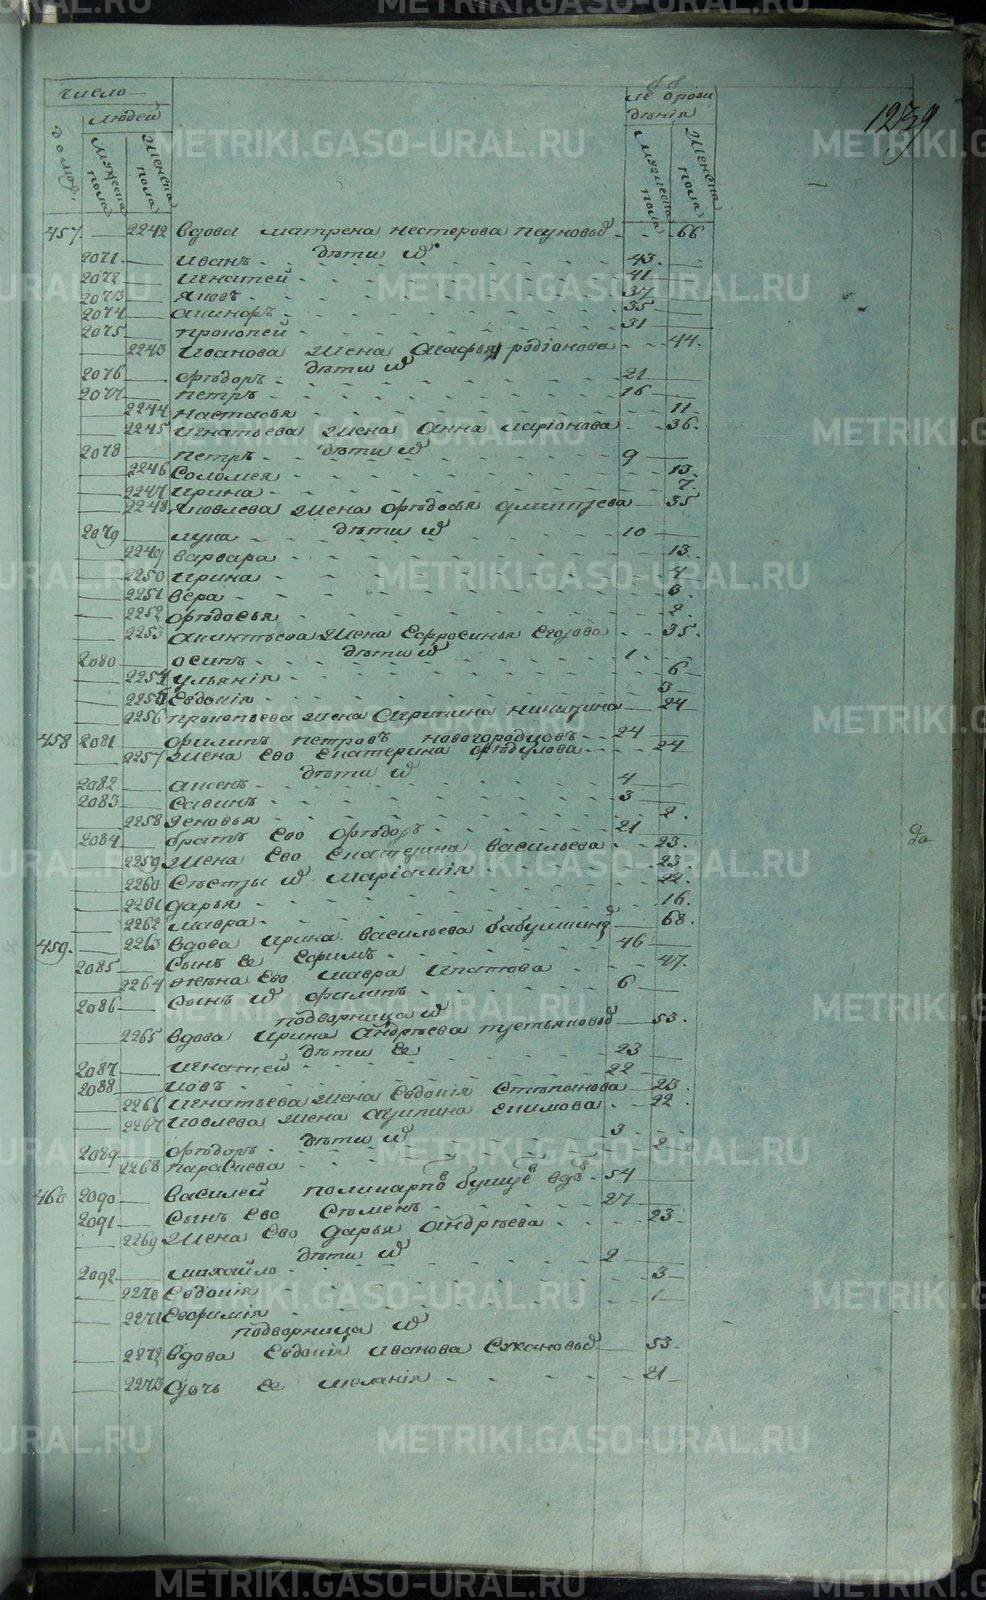 число
людей
лѣ ѿ рожд
дѣнія
домов.
мужеска пола
женска пола
мужеска пола
женска пола
1239
457. 2242 вдова матрена нестерова 66
дѣти ѿ
2071 иванъ 43
2072 игнатей 41
2073 яковъ 37
2074 35
2075 прокопей 31
2243 иванова жена агафья родіонова 44
дѣти ѿ
2076 ѳедоръ 21
2077 петръ 16
2244 настасья 11
2245 игнатьева жена анна ларіонова 36
дѣти ѿ
2078 петръ 9
2246 соломея 13
2247 ирина 7
2248 яковлева жена ѳедосья 35
дѣти ѿ
2079 лука 10
2249 варвара 13
2250 ирина 4
2251 вера 6
2252 ѳедосья 2
2253 жена ефросинья егорова 35
дѣти ѿ
2080 осипъ 1
2254 ульянія 6
2255 евдокія 3
2256 прокопьева жена агрипина никитина 24
458 2081 филипъ петровъ новогородцовъ 24
2257 жена ево екатерина ѳедулова 24
дѣти ѿ
2082 4
2083 савинъ 3
2258 зеновья 2
2084 братъ ево ѳедоръ 21
2259 жена ево екатерина васильева 23
2260 сестры ѿ маріамія 23
22
2261 дарья 16
2262 мавра
2263 вдова ирина васильева бабушкина 68
459. 2085 сынъ ее ефимъ 46
2264 жена ево мавра ипатова 47
2086 сынъ ѿ филипъ 6
подворница ѿ
2265 вдова ирина андреева 53
дѣти ее
2087 игнатей 23
2088 иовъ 22
2266 игнатьева жена евдокія степанова 23
2267 иовлева жена агрипина екимова 22
дѣти ѿ
2089 ѳедоръ 3
2268 парасковья 2
460 2090 василей поликарпо 54
2091 сынъ ево семенъ 27
2269 жена ево дарья андреева 23
дѣти ѿ
2092 михайло 2
2270 евдокія 3
2271 евфимія 1
подворница ѿ
2272 вдова евдокія иванова 53
2273 дочь ее меланія 21
METRIKI.GASO-URAL.RU